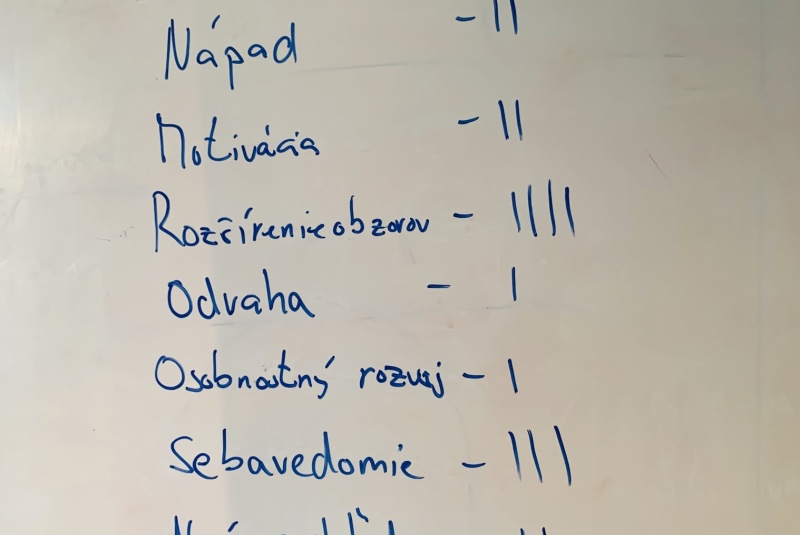 Nápad - ||
Motivácia - ||
Rozčírenie obzorov - ||||
Odvaha - |
Osobnostný rozvoj - |
Sebavedomie - |||